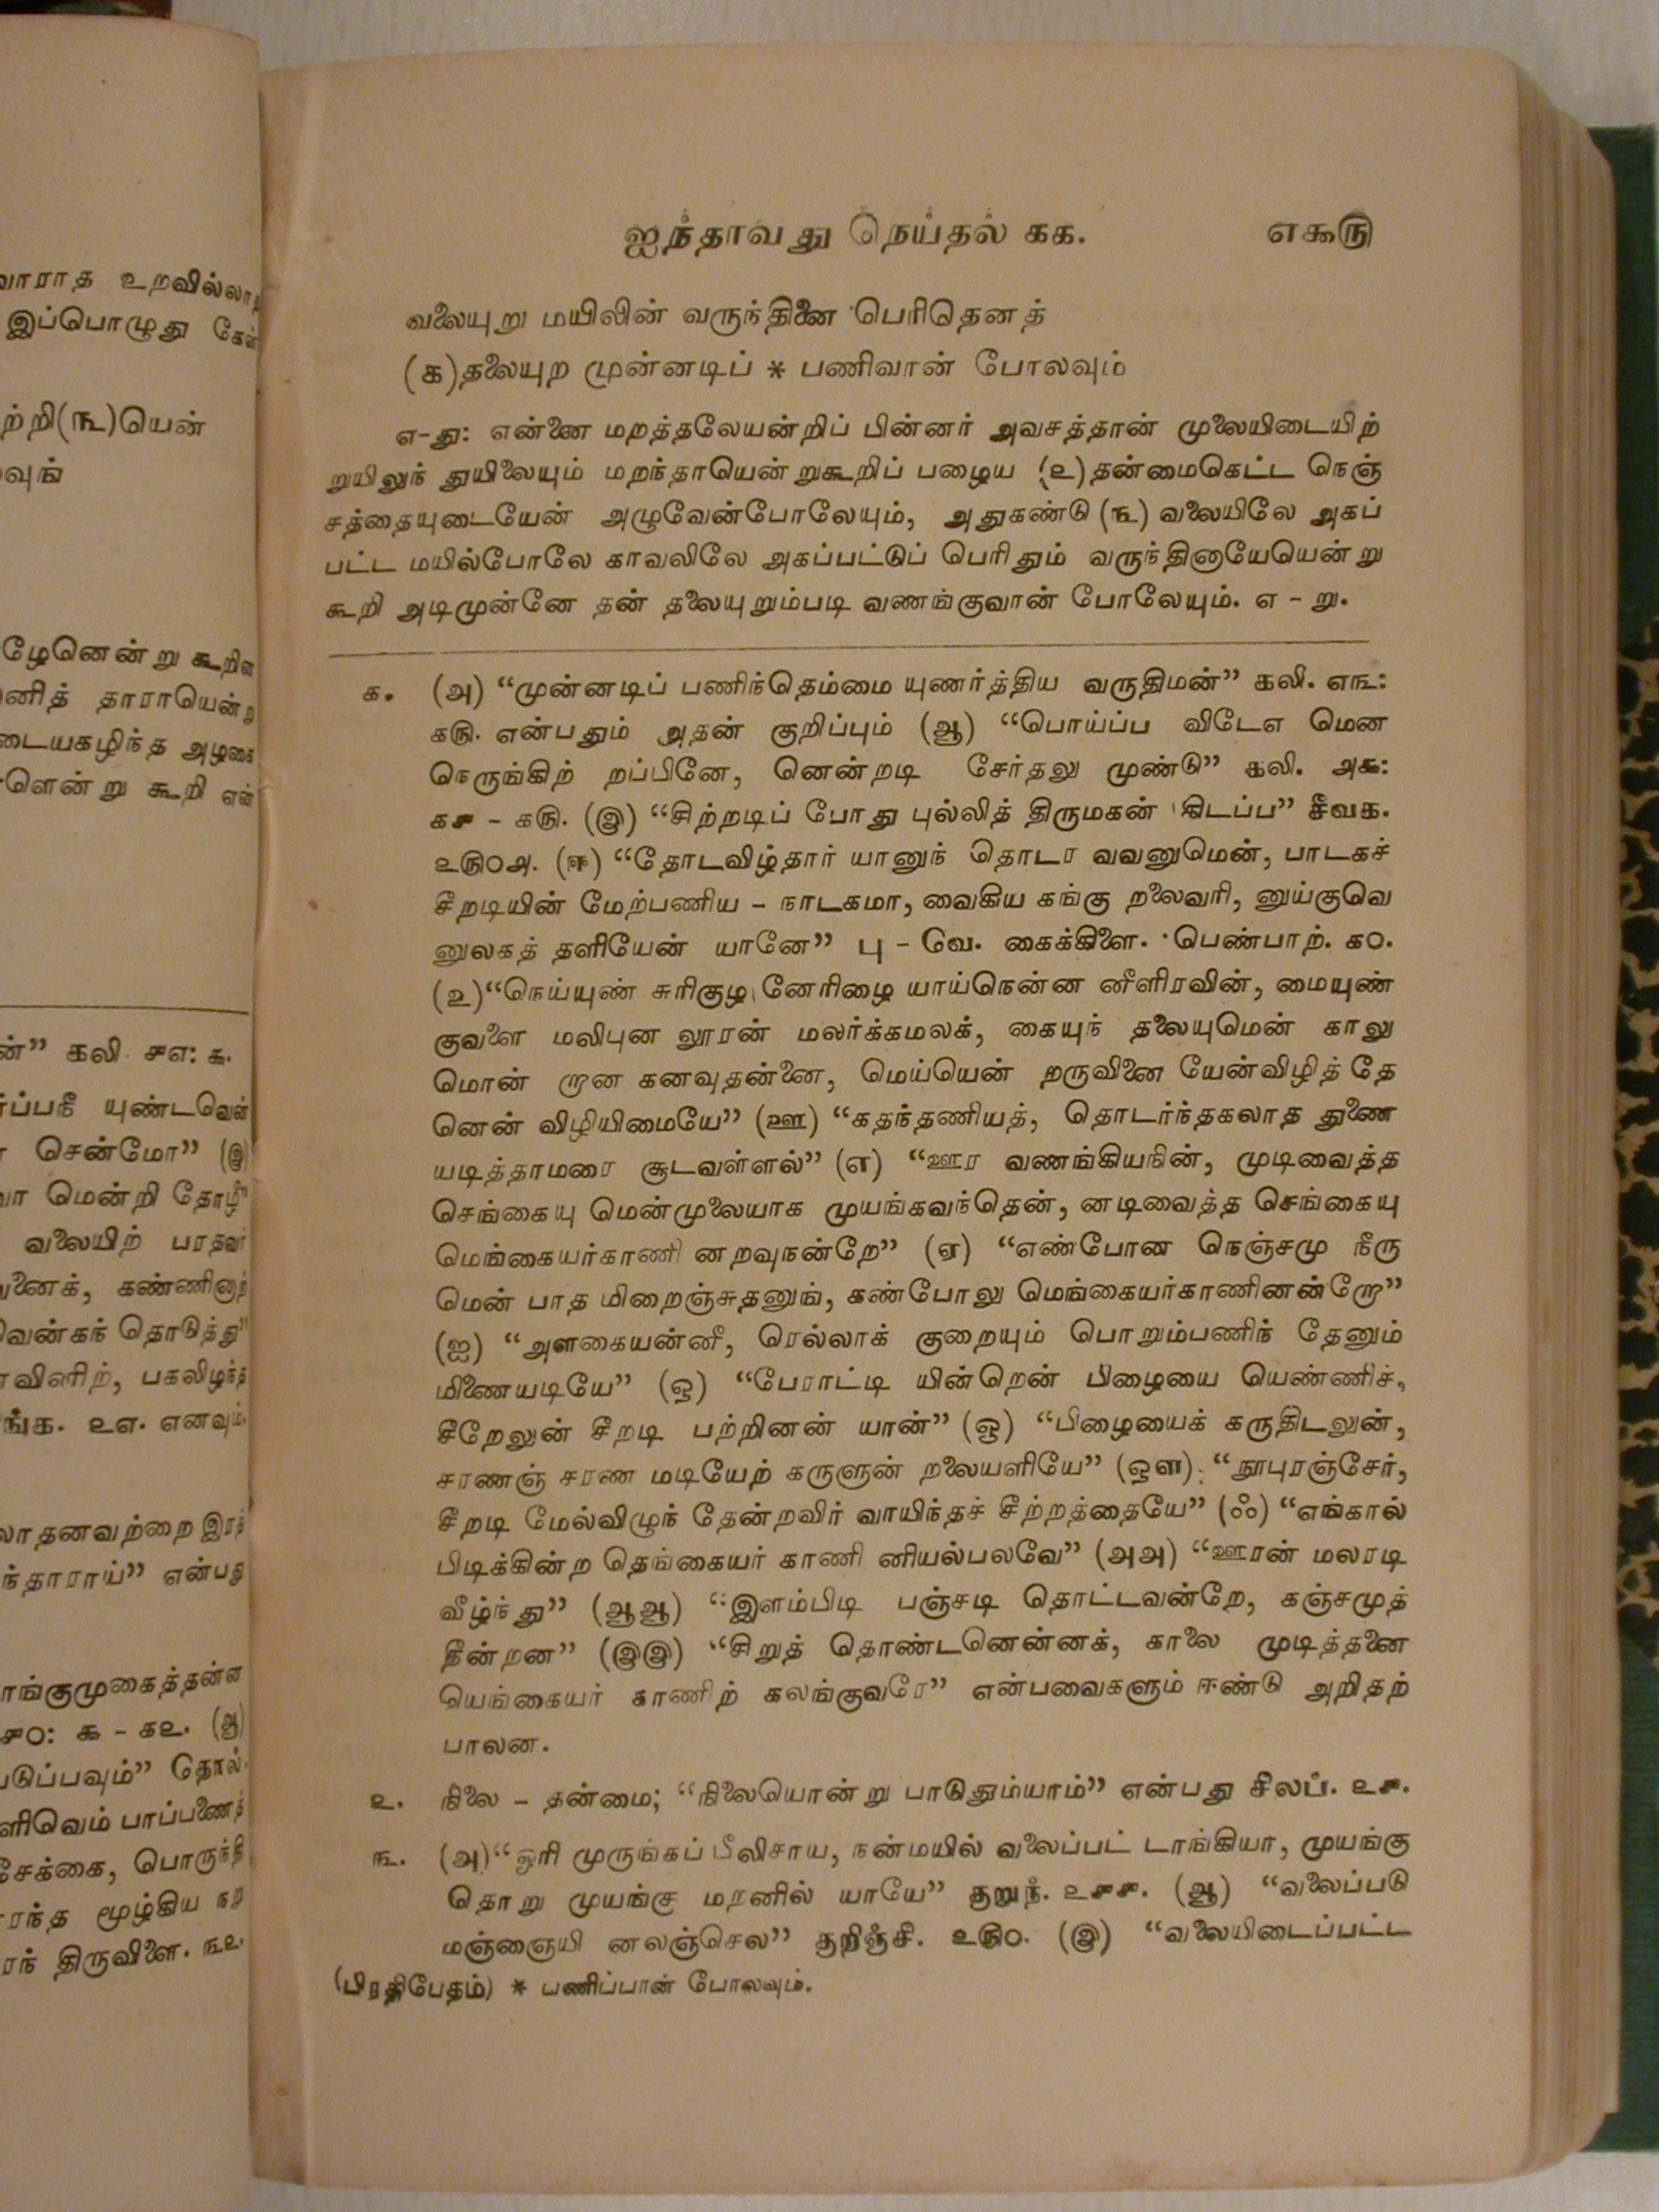 வாராத உறவில்லாத
இப்பொழுது கேள்
ற்றி(௩)யென்
வுங்
ழேனென்று கூறின
னித் தாராயென்று
டையகழிந்த அழகை
ளென்று கூறி என்
ன்” கலி. ௪௭: ௯.
ர்ப்பநீ யுண்டவென்
சென்மோ” (இ)
வா மென்றி தோழி
வலையிற் பரதவர்
னைக், கண்ணினுற்
வென்கந் தொடுத்து”
ரவினிற், பகலிழந்த
ங்க. ௨௭. எனவும்.
லாதனவற்றை இரத்
ந்தாராய்” என்பது
ாங்குமுகைத்தன்ன
௪௦: ௯ - ௧௨. (ஆ)
படுப்பவும்” தொல்.
ளிவெம் பாப்பணைத்
சேக்கை, பொருந்தி
ரந்த மூழ்கிய நற
ரந் திருவிளை. ௩௨.
ஐந்தாவது நெய்தல் ௧௧. ௭௯௫
வலையுறு மயிலின் வருந்தினை பெரிதெனத்
(௧)தலையுற முன்னடிப் * பணிவான் போலவும்
எ-து: என்னை மறத்தலேயன்றிப் பின்னர் அவசத்தான் முலையிடையிற்
றுயிலுந் துயிலையும் மறந்தாயென்றுகூறிப் பழைய (௨)தன்மைகெட்ட நெஞ்
சத்தையுடையேன் அழுவேன்போலேயும், அதுகண்டு (௩) வலையிலே அகப்
பட்ட மயில்போலே காவலிலே அகப்பட்டுப் பெரிதும் வருந்தினாயேயென்று
கூறி அடிமுன்னே தன் தலையுறும்படி வணங்குவான் போலேயும். எ - று.
௧. (அ) “முன்னடிப் பணிந்தெம்மை யுணர்த்திய வருதிமன்” கலி. ௭௩:
௧௫. என்பதும் அதன் குறிப்பும் (ஆ) “பொய்ப்ப விடேஎ மென
நெருங்கிற் றப்பினே, னென்றடி சேர்தலு முண்டு” கலி. ௮௯:
௧௪ - ௧௫. (இ) “சிற்றடிப் போது புல்லித் திருமகன் கிடப்ப” சீவக.
௨௫௦௮. (ஈ) “தோடவிழ்தார் யானுந் தொடர வவனுமென், பாடகச்
சீறடியின் மேற்பணிய - நாடகமா, வைகிய கங்கு றலைவரி, னுய்குவெ
னுலகத் தளியேன் யானே” பு - வே. கைக்கிளை. பெண்பாற். ௧௦.
(உ)“நெய்யுண் சுரிகுழ னேரிழை யாய்நென்ன னீளிரவின், மையுண்
குவளை மலிபுன லூரன் மலர்க்கமலக், கையுந் தலையுமென் காலு
மொன் றான கனவுதன்னை, மெய்யென் றருவினை யேன்விழித்தே
னென் விழியிமையே” (ஊ) “கதந்தணியத், தொடர்ந்தகலாத துணை
யடித்தாமரை சூடவள்ளல்” (எ) “ஊர வணங்கியநின், முடிவைத்த
செங்கையு மென்முலையாக முயங்கவந்தென், னடிவைத்த செங்கையு
மெங்கையர்காணி னறவுநன்றே” (ஏ) “எண்போன நெஞ்சமு நீரு
மென் பாத மிறைஞ்சுதனுங், கண்போலு மெங்கையர்காணினன்றே”
(ஐ) “அளகையன்னீ, ரெல்லாக் குறையும் பொறும்பணிந் தேனும்
மிணையடியே” (ஒ) “பேராட்டி யின்றென் பிழையை யெண்ணிச்,
சீறேலுன் சீறடி பற்றினன் யான்” (ஓ) “பிழையைக் கருதிடலுன்,
சரணஞ் சரண மடியேற் கருளுன் றலையளியே” (ஔ) “நூபுரஞ்சேர்,
சீறடி மேல்விழுந் தேன்றவிர் வாயிந்தச் சீற்றத்தையே” (ஃ) “எங்கால்
பிடிக்கின்ற தெங்கையர் காணி னியல்பலவே” (அஅ) “ஊரன் மலரடி
வீழ்ந்து” (ஆஆ) “இளம்பிடி பஞ்சடி தொட்டவன்றே, கஞ்சமுத்
தீன்றன” (இஇ) “சிறுத் தொண்டனென்னக், காலை முடித்தனை
யெங்கையர் காணிற் கலங்குவரே” என்பவைகளும் ஈண்டு அறிதற்
பாலன.
௨. நிலை - தன்மை; “நிலையொன்று பாடுதும்யாம்” என்பது சிலப். ௨௪.
௩. (அ)“ஒரி முருங்கப் பீலிசாய, நன்மயில் வலைப்பட் டாங்கியா, முயங்கு
தொறு முயங்கு மறனில் யாயே” குறுந். ௨௪௪. (ஆ) “வலைப்படு
மஞ்ஞையி னலஞ்செல” குறிஞ்சி. ௨௫௦. (இ) “வலையிடைப்பட்ட
(பிரதிபேதம்) * பணிப்பான் போலவும்.